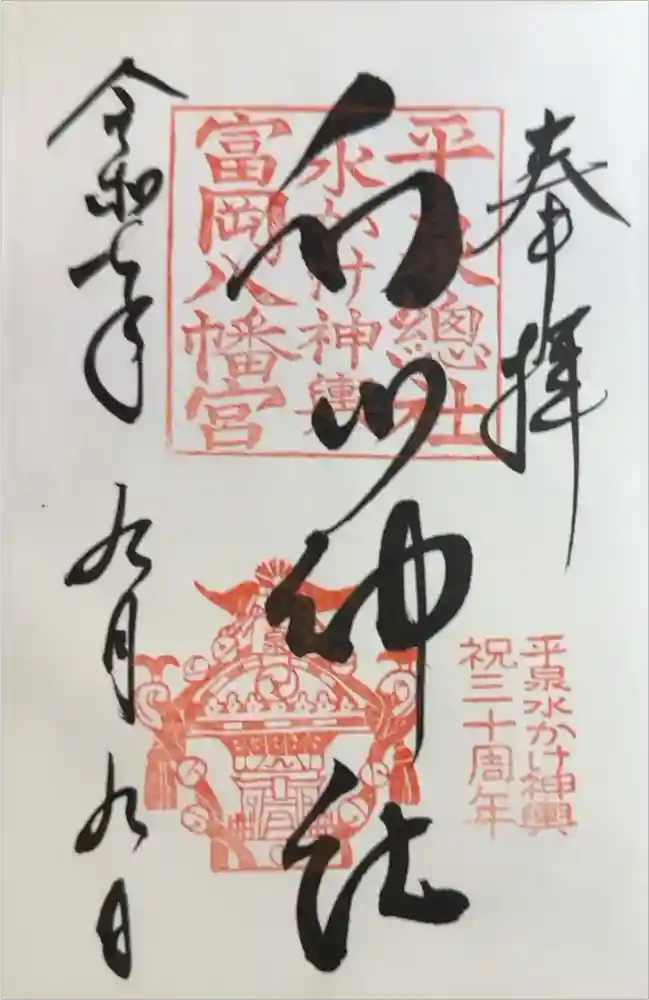 奉拝
平泉總社
水かけ神輿
富岡八幡宮
白山神社
平泉水かけ神輿
祝三十周年
令和七年 九月 九日